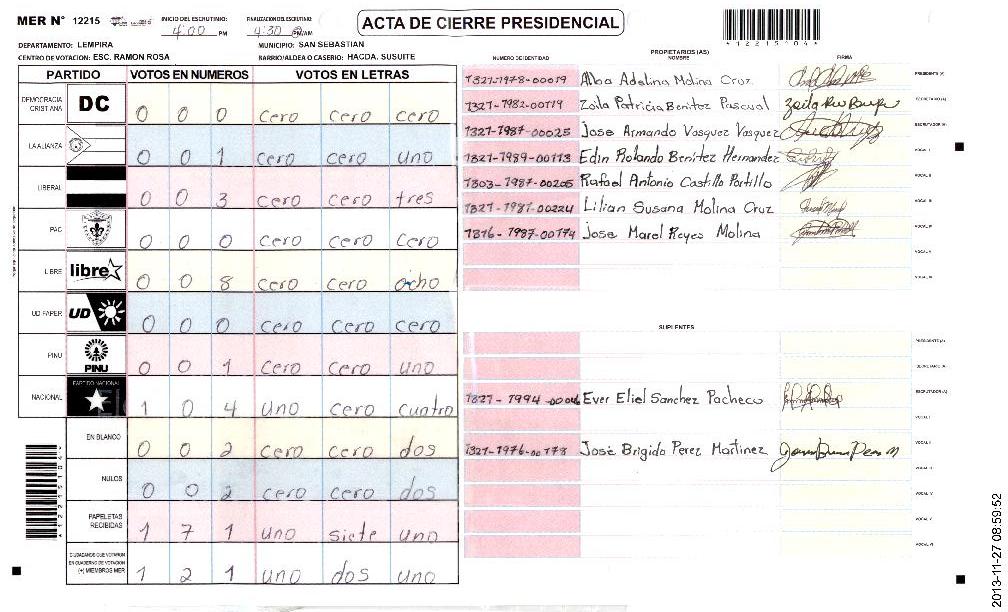 MER N° 12215
INICIO DEL ESCRUTINIO:
4:00 PM
FINALIZACION DEL ESCRUTINIO:
4:30 PM/AM
ACTA DE CIERRE PRESIDENCIAL
*12215104*
DEPARTAMENTO: LEMPIRA
MUNICIPIO: SAN SEBASTIAN
CENTRO DE VOTACION: ESC. RAMON ROSA
BARRIO/ALDEA O CASERIO: HACDA. SUSUITE
PARTIDO VOTOS EN NUMEROS VOTOS EN LETRAS
DEMOCRACIA CRISTIANA DC 0 0 0 cero cero cero
LA ALIANZA 0 0 1 cero cero uno
LIBERAL 0 0 3 cero cero tres
PAC 0 0 0 cero cero cero
LIBRE libre 0 0 8 cero cero ocho
UD FAPER UD 0 0 0 cero cero cero
PINU PINU 0 0 1 cero cero uno
NACIONAL PARTIDO NACIONAL 1 0 4 uno cero cuatro
EN BLANCO 0 0 2 cero cero dos
NULOS 0 0 2 cero cero dos
PAPELETAS RECIBIDAS 1 7 1 uno siete uno
CIUDADANOS QUE VOTARON EN CUADERNO DE VOTACION (+) MIEMBROS MER 1 2 1 uno dos uno
PROPIETARIOS (AS)
NUMERO DE IDENTIDAD NOMBRE FIRMA
1327-1978-00019 Alba Adelina Molina Cruz PRESIDENTE (A)
1327-1982-00119 Zoila Patricia Benitez Pascual SECRETARIO (A)
1327-1987-00025 Jose Armando Vasquez Vasquez ESCRUTADOR (A)
1327-1989-00113 Edin Rolando Benitez Hernandez VOCAL I
1303-1987-00205 Rafael Antonio Castillo Portillo VOCAL II
1327-1987-00224 Lilian Susana Molina Cruz VOCAL III
1316-1987-00174 Jose Marel Reyes Molina VOCAL IV
VOCAL V
VOCAL VI
SUPLENTES
PRESIDENTE (A)
SECRETARIO (A)
1327-1994-00046 Ever Eliel Sanchez Pacheco ESCRUTADOR (A)
VOCAL I
1327-1976-00178 José Brigido Perez Martinez VOCAL II
VOCAL III
VOCAL IV
VOCAL V
VOCAL VI
2013-11-27 08:59:52